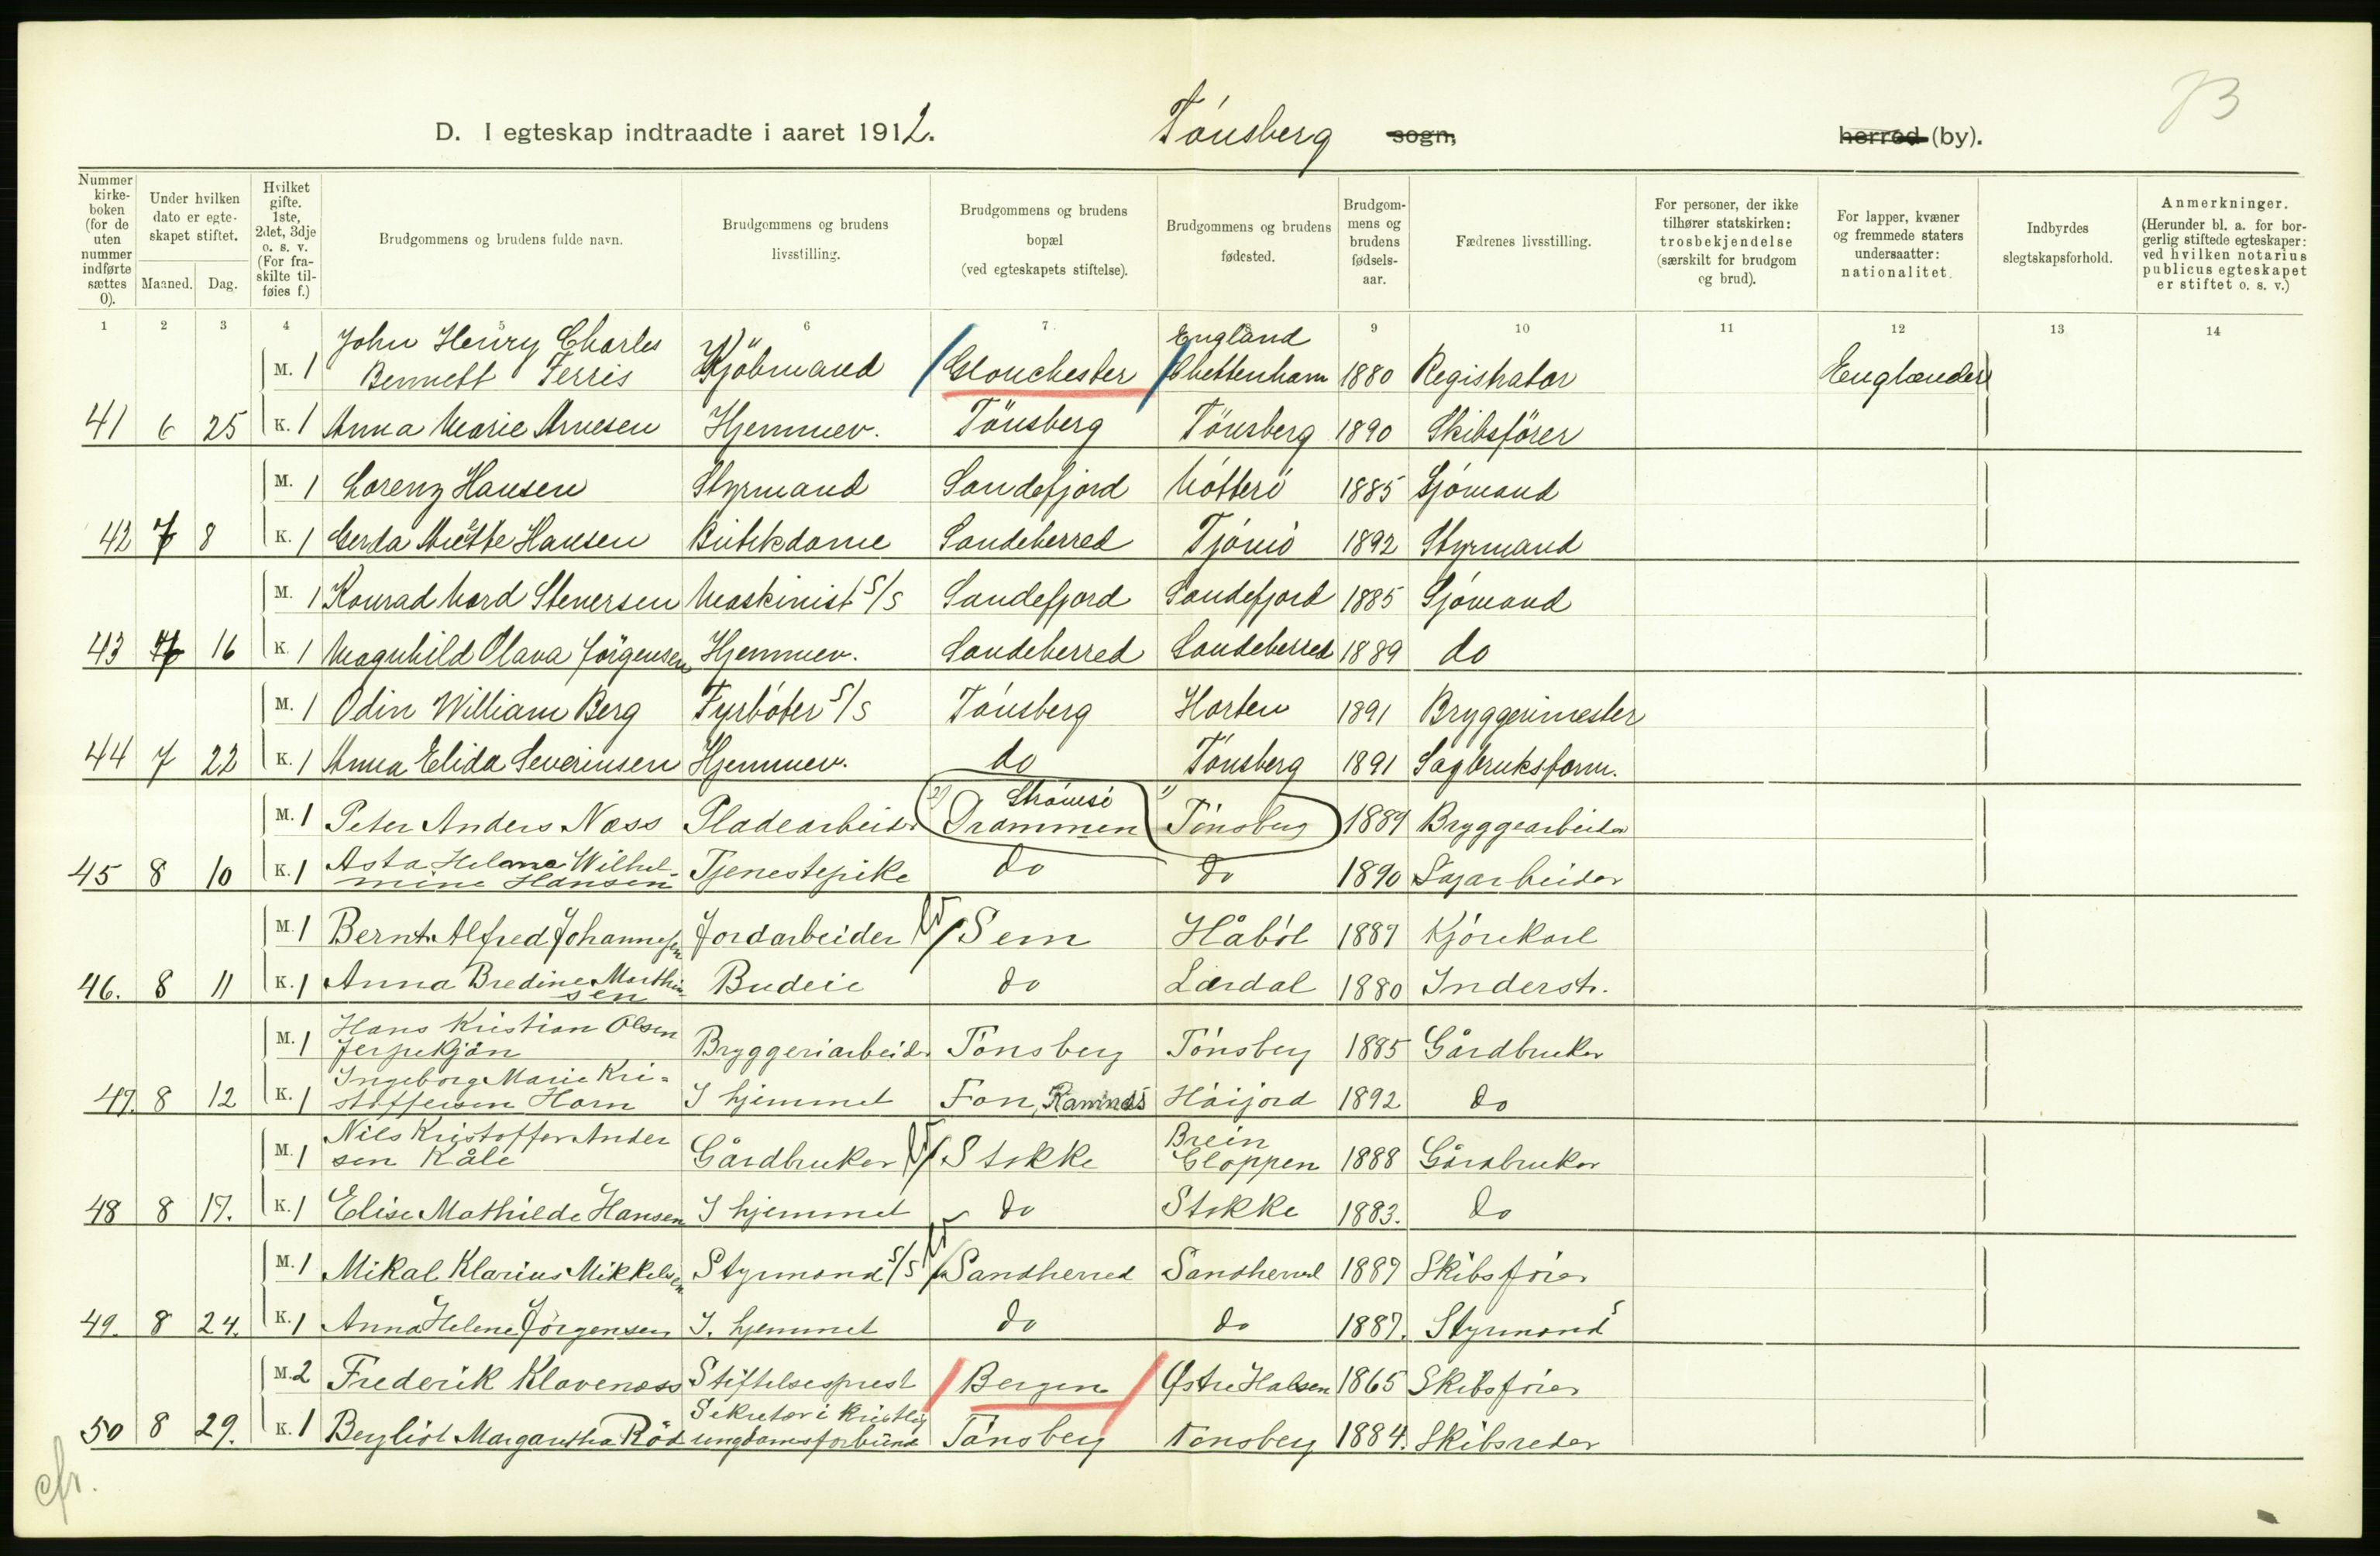 D. I egteskap indtraadte i aaret 1912. Tónsberg sogn, herred (by).
Nummer kirke-boken (for de uten nummer indførte sættes 0).
Under hvilken dato er egte-skapet stiftet.
Maaned. Dag.
Hvilket gifte. 1ste, 2det, 3dje o. s. v. (For fra-skilte til-føies f.)
Brudgommens og brudens fulde navn.
Brudgommens og brudens livsstilling.
Brudgommens og brudens bopæl (ved egteskapets stiftelse).
Brudgommens og brudens fødested.
Brudgom-mens og brudens fødsels-aar.
Fædrenes livsstilling.
For personer, der ikke tilhører statskirken: trosbekjendelse (særskilt for brudgom og brud).
For lapper, kvæner og fremmede staters undersaatter: nationalitet.
Indbyrdes slegtskapsforhold.
Anmerkninger. (Herunder bl. a. for bor-gerlig stiftede egteskaper: ved hvilken notarius publicus egteskapet er stiftet o. s. v.)
1 2 3 4 5 6 7 8 9 10 11 12 13 14
John Henry Charles England
M. 1 Bennett Ferris Kjöbmand Glouchester Chettenham 1880 Registrator Englænder
41 6 25 K. 1 Anna Marie Arnesen Hjemmev. Tönsberg Tönsberg 1890 Skibsförer
M. 1 Lorenz Hansen Styrmand Sandefjord Nótteró 1885 Sjómand
42 7 8 K. 1 Gerda Mætte Hansen Butikdame Sandeherred Tjómó 1892 Styrmand
M. 1 Konrad Nord Stenersen Maskinist S/S Sandefjord Sandefjord 1885 Sjómand
43 7 16 K. 1 Magnhild Olava Jörgensen Hjemmev. Sandeherred Sandeherred 1889 do
M. 1 Odin William Berg Fyrbóter S/S Tónsberg Horten 1891 Bryggerimester
44 7 22 K. 1 Anna Elida Severinsen Hjemmev. do Tónsberg 1891 Sagbruksform.
2) Strómsó 1)
M. 1 Peter Anders Næss Pladearbeider Drammen Tónsberg 1889 Bryggearbeider
Asta Helene Wilhel-
45 8 10 K. 1 mine Hansen Tjenestepike do do 1890 Sagarbeider
M. 1 Bernt Alfred Johannesen Jordarbeider Sem Håból 1889 Kjórekarl
46. 8 11 K. 1 Anna Bredine Marthinsen Budeie do Lærdal 1880 Inderst.
Hans Kristian Olsen
M. 1 Jerpekjön Bryggeriarbeider Tónsberg Tónsberg 1885 Gårdbruker
Ingeborg Marie Kri-
47. 8 12 K. 1 stoffersen Horn I hjemmet Fon, Ramnæs Hóijord 1892 do
Nils Kristoffer Ander Brein
M. 1 sen Kåle Gårdbruker Stokke Gloppen 1888 Gårdbruker
48 8 17. K. 1 Elise Mathilde Hansen I hjemmet do Stokke 1883. do
M. 1 Mikal Klarius Mikkelsen Styrmand S/S Sandherred Sandherred 1889 Skibsfórer
49. 8 24. K. 1 Anna Helene Jörgensen I. hjemmet do do 1887. Styrmand
M. 2 Frederik Klaveness Stiftelsesprest Bergen Østre Halsen 1865 Skibsfórer
Sekretær i Kristlig
50 8 29. K. 1 Bergliot Margaretha Röd ungdomsforbund Tónsberg Tónsberg 1884. Skibsreder
cfr.